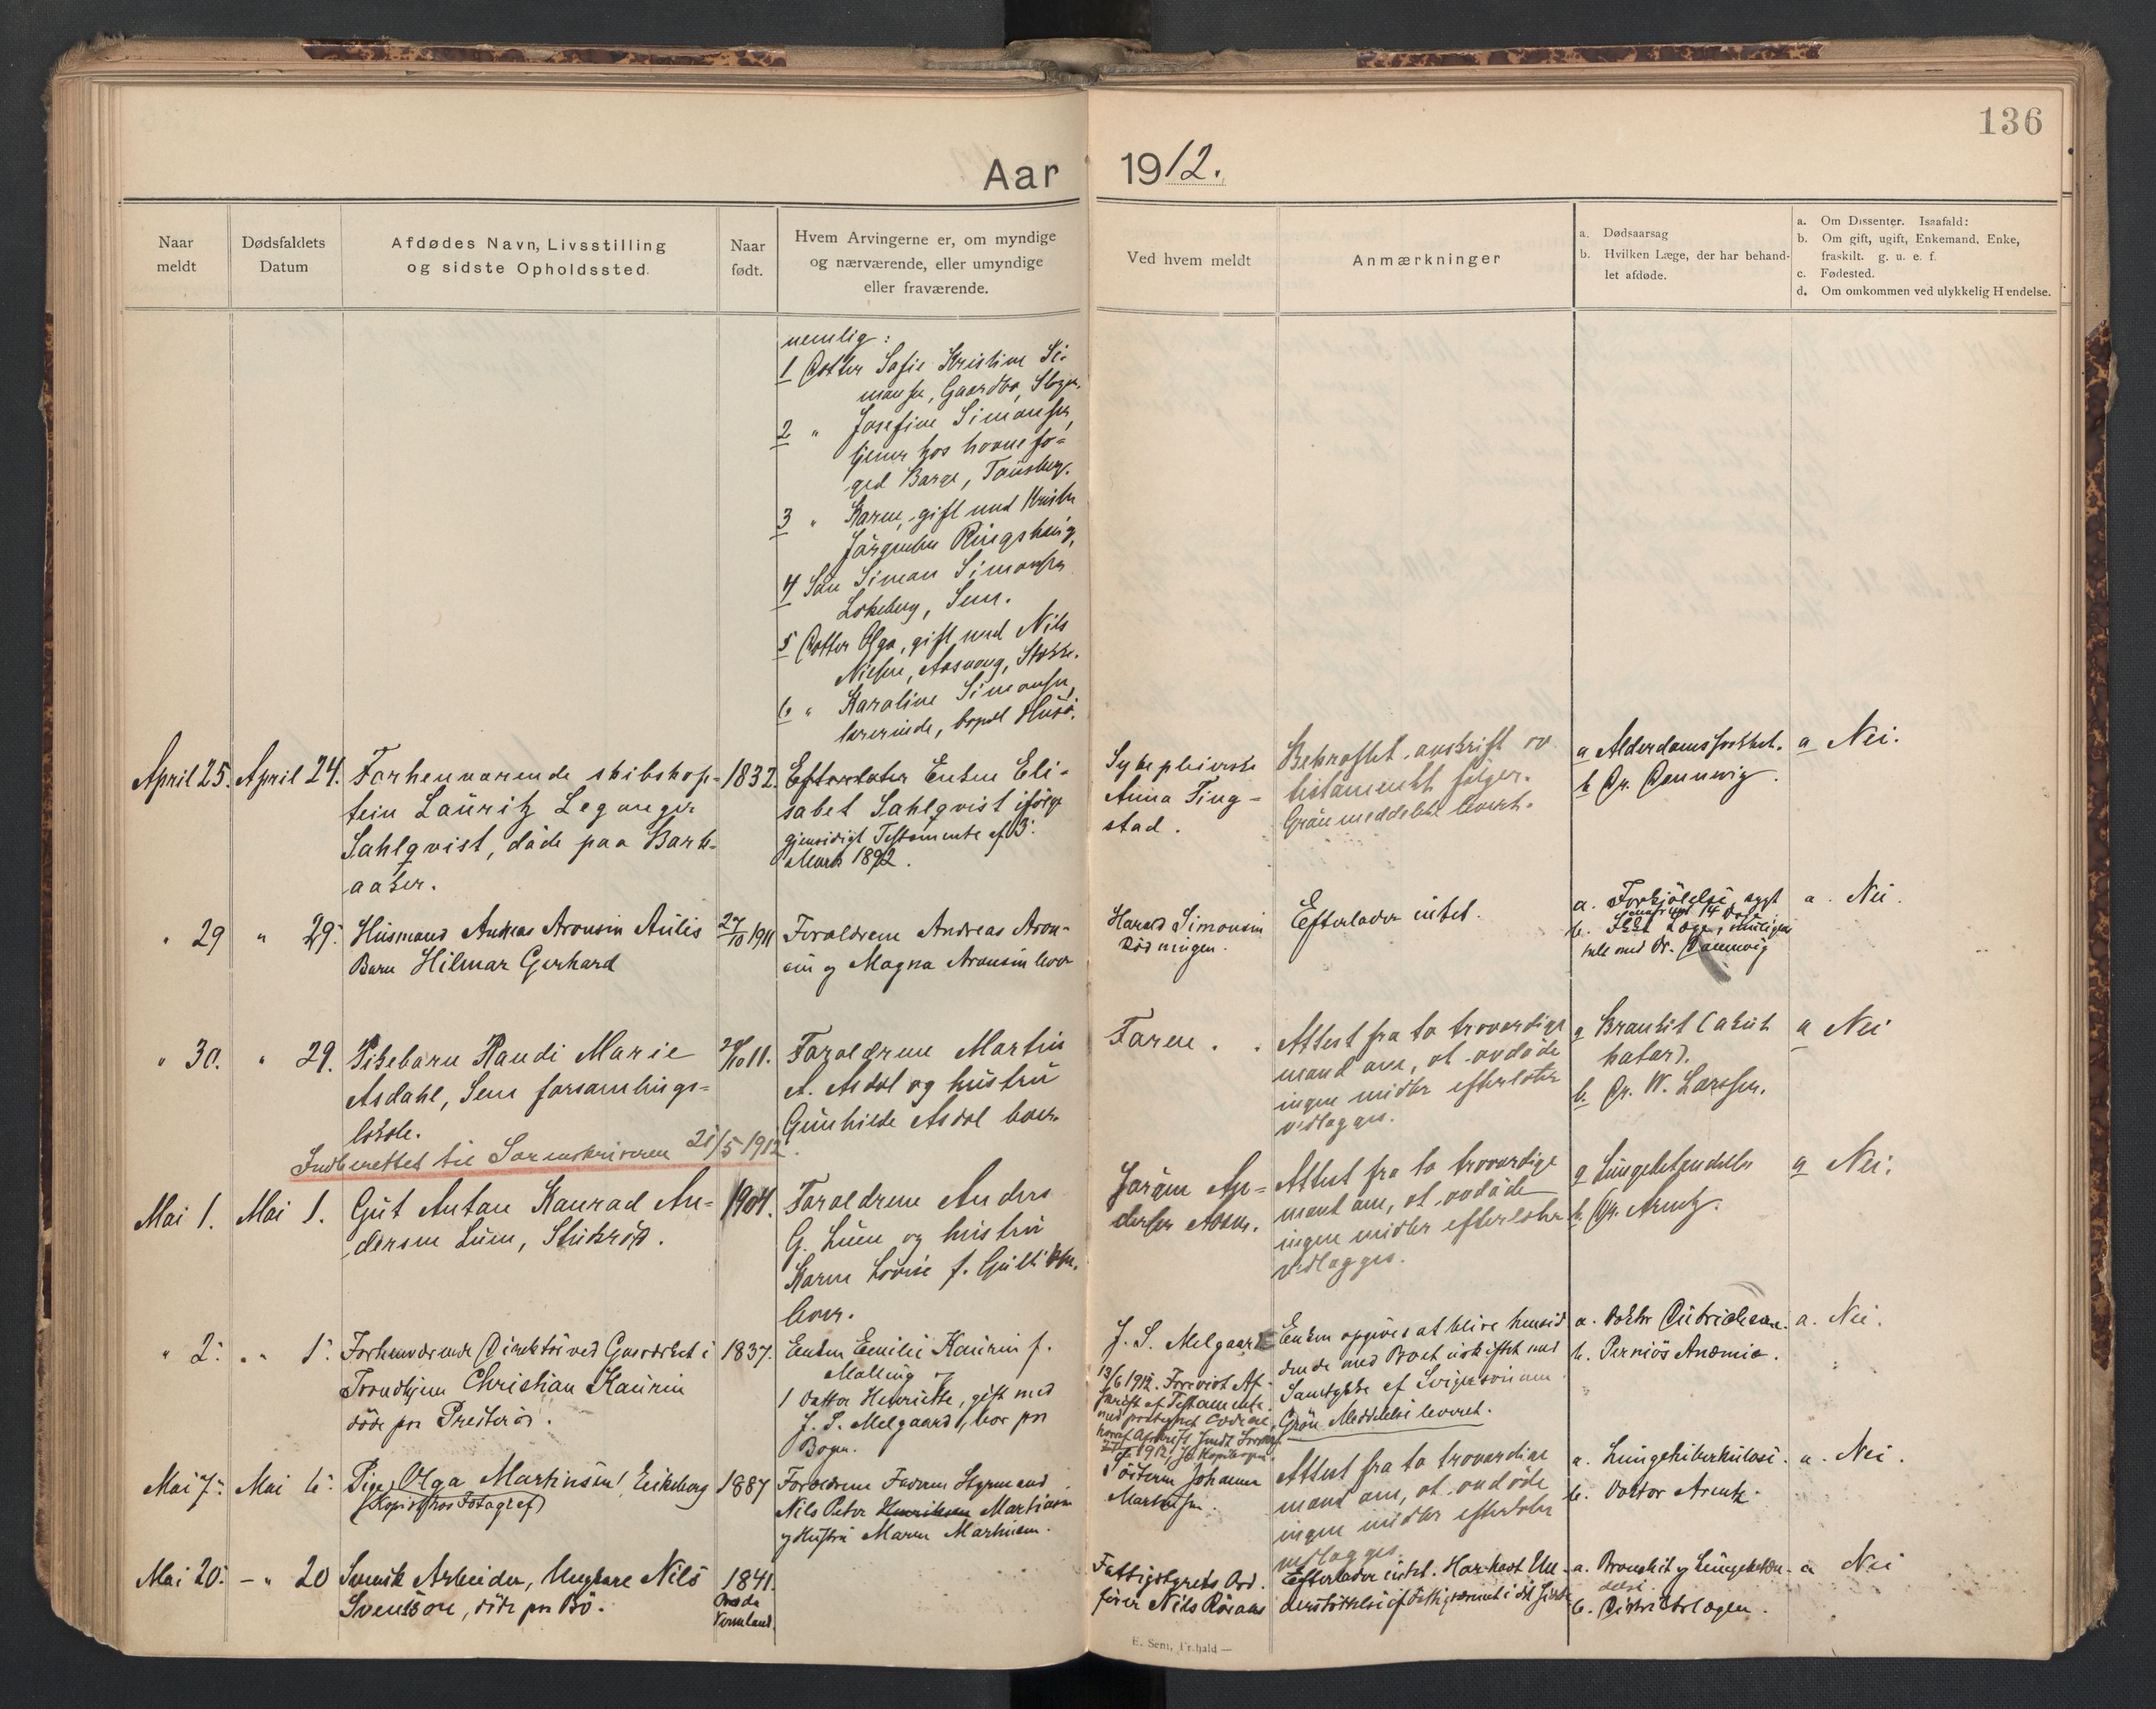 136
Aar 1912.
Naar meldt
Dødsfaldets Datum
Afdødes Navn, Livsstilling og sidste Opholdssted.
Naar født.
Hvem Arvingerne er, om myndige og nærværende, eller umyndige eller fraværende.
Ved hvem meldt
Anmærkninger
a. Dødsaarsag
b. Hvilken Læge, der har behandlet afdøde.
a. Om Dissenter. Isaafald:
b. Om gift, ugift, Enkemand, Enke, fraskilt. g. u. e. f.
c. Fødested.
d. Om omkommen ved ulykkelig Hændelse.
nemlig:
1 Datter Sofie Kristine Si-
monsen, Gaardbo, Slagen,
2 " Josefine Simonsen,
tjener hos havnefo-
ged Barge, Tønsberg.
3 " Karen, gift med
Jørgensen Ringshaug,
4 Søn Simon Simonsen
Sem.
5 Datter Olga, gift med Nils
Nielsen, Stokke.
6 " Karoline Simonsen,
lærerinde, bopæl Husø.
April 25.
April 24.
Forhenværende skibskap-
tein Lauritz Leganger
Sahlqvist, døde paa Bark-
aaker.
1832.
Efterlater Enken Eli-
sabet Sahlqvist ifølge
gjensidigt Testamente af 3.
Marts 1892.
Sykepleierske
Anna Ting-
stad.
Bekræftet avskrift av
testamentet følger.
Grøn meddelelse levert.
a Alderdomssvakhet.
b Dr. Dannevig.
a Nei.
" 29
" 29.
Husmand Andreas Aronsen Aulis
Barn Hilmar Gerhard
27/10 1911
Forældrene Andreas Aron-
sen og Magna Aronsen lever
Harald Simonsen
Rødningen.
Efterlader intet.
a. Forkjølelse, sygt
14 Dage
b. Læge,
med Dr. Dannevig
a. Nei.
" 30.
" 29.
Pikebarn Randi Marie
Asdahl, Sem forsamlings-
lokale.
/10 11.
Forældrene Martin
A. Asdal og hustru
Gunhilde Asdal lever.
Faren.
Attest fra to troværdige
mænd om, at avdøde
ingen midler efterlater
vedlægges.
a Bronkit (akut
katar).
b. Dr. W. Larssen.
a Nei
Indberettet til Sorenskriveren 21/5 1912.
Mai 1.
Mai 1.
Gut Anton Konrad An-
dersen Lunn,
1904.
Forældrene Anders
G. Lunn og hustru
Karen Lovise f. Gulliksen.
lever.
Jørgen An-
dersen
Attest fra to troværdige
mænd om, at avdøde
ingen midler efterlater
vedlægges.
a Lungebetændelse
b. Dr. Arentz.
a Nei.
" 2.
" 1.
Forhenværende Direktør ved Gasverket i
Trondhjem Christian Kaurin
døde paa Presterød.
1837.
Enken Emilie Kaurin f.
Malling og
1 Datter Henriette, gift med
J. S. Melgaard, bor paa
Bogen.
J. S. Melgaard
13/6 1912. Forevist Af-
skrift af Testamente
Enken opgives at blive hensid-
dende med Boet uskiftet med
Samtykke af Svigersønnen
Grøn Meddelelse leveret.
a. Doktor Didrichsen.
b. Perniøs Anæmie.
a. Nei.
Mai 7.
Mai 6.
Pige Olga Martinsen, Eikeberg
(Kopist hos Fotograf)
1887
Forældrene Forhen Styrmand
Nils Peter Henriksen Martinsen
og Hustru Maren Martinsen.
Søsteren Johanna
Martinsen.
Attest fra to troværdige
mænd om, at avdøde
ingen midler efterlater
vedlægges.
a. Lungetuberkulose.
b. Doktor Arentz.
a. Nei.
Mai 20.
— " 20
Svensk Arbeider, Ungkare Nils
Svensson, døde paa Bø.
1841.
Vermland.
Fattigstyrets Ord-
fører Nils Røraas
Efterlader intet. Har havt Un-
derstøttelse af Fattigvæsenet i
a. Bronchit og Lungebetæn-
delse.
b. Distriktslægen.
a Nei
E. Sem, Fr.hald —